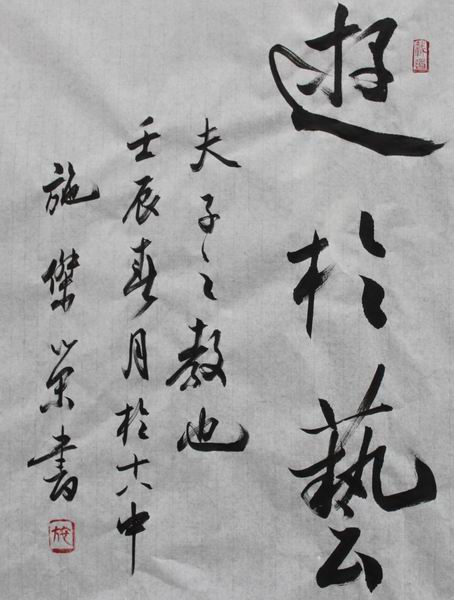 遊於藝
夫子之教也
壬辰春月於十六中
施傑榮書
施